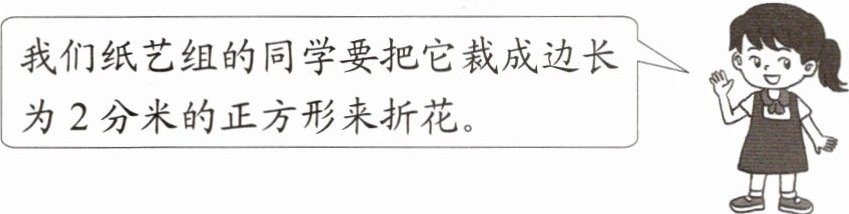 我们纸艺组的同学要把它裁成边长
为2分米的正方形来折花。